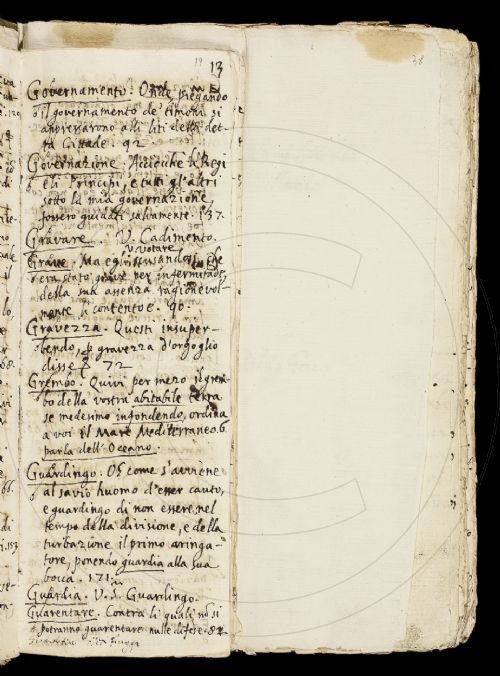 19 13
Governamento. Onde piegando
il governamento de' timoni si
appressarono alli liti della det-
ta Cittade. 92
Governazione. Acciocche li Regi
e li Principi, e tutti gl'altri
sotto la mia governazione,
fossero guidati salvamente. 137.
Gravare. V. Cadimento.
V. votare
Grave. Ma egli scusandosi, che
era stato grave per infermitade,
della sua assenza ragionevol-
mente li contentoe. 90.
Gravezza. Questi insuper-
bendo, p gravezza d'orgoglio
disse 72
Grembo. Quivi per mezo il grem-
bo della vostra abitabile terra
se medesimo infondendo, ordina
a voi il Mare Mediterraneo. 6.
parla dell'Oceano.
Guardingo. O come s'avviene
al savio huomo d'esser cauto,
e guardingo di non essere nel
tempo della divisione, e della
turbazione il primo aringa-
tore, ponendo guardia alla sua
bocca. 171.
Guardia. V. S. Guardingo.
Guarentare. Contra li quali nō si
potranno guarentare nulle difese. 82.
38